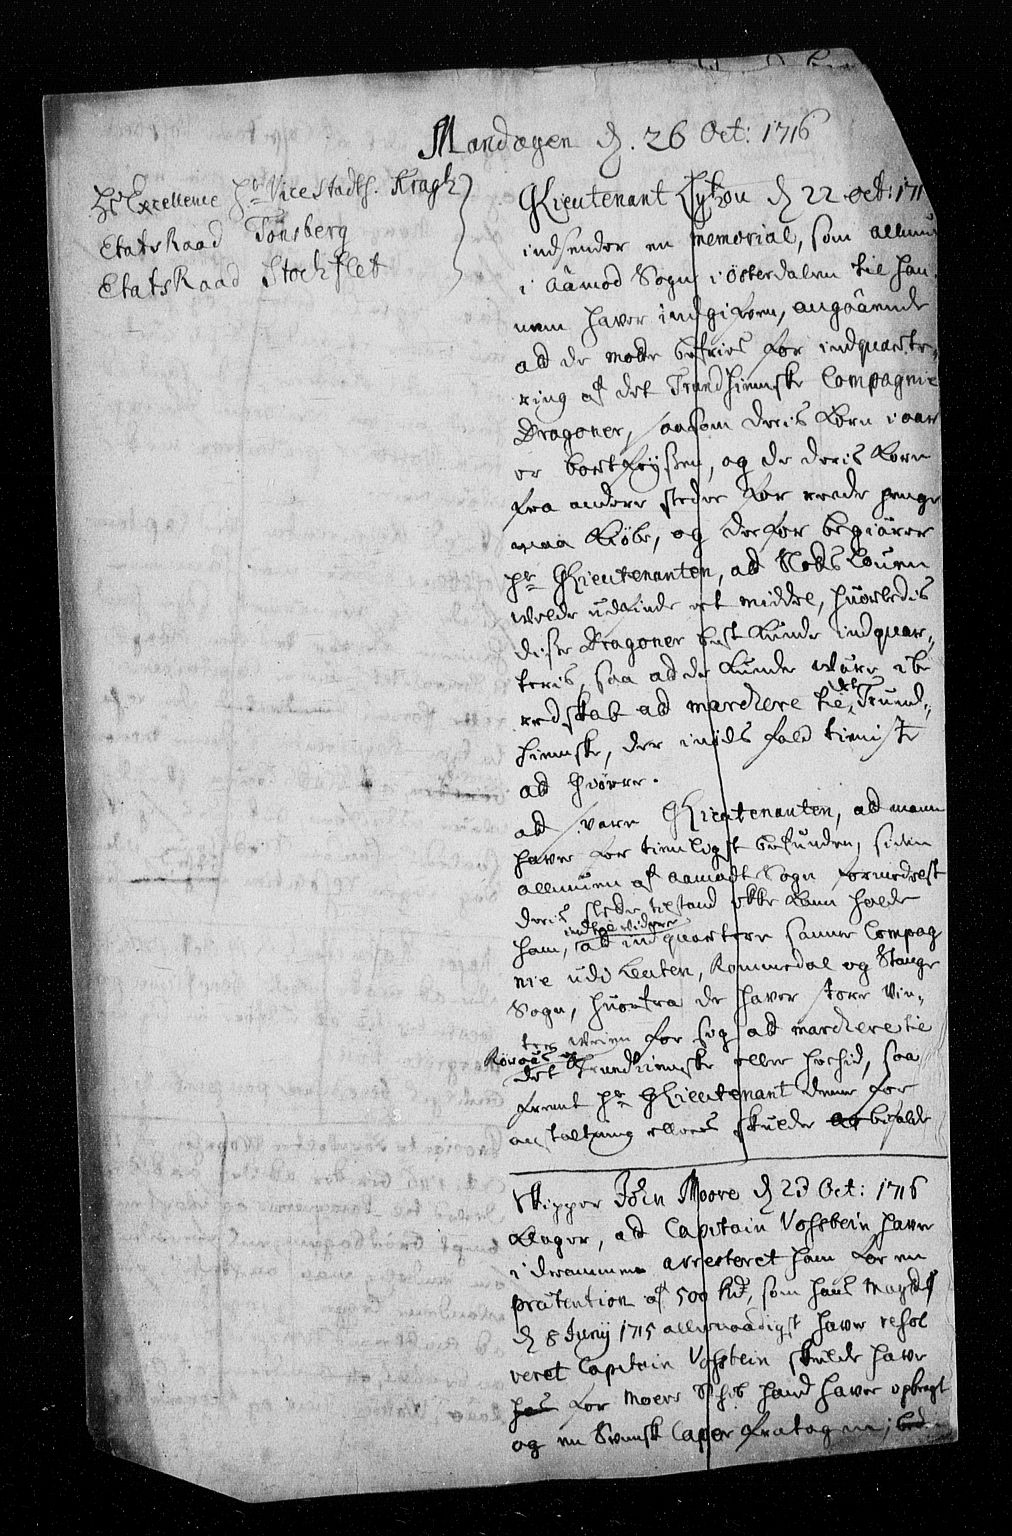 Mandagen d. 26 Oct: 1716
Hs Excellence Hr Vice Stadth. Kragh
Etats Raad Tønsberg
Etats Raad Stochflet
GLieutenant Lytzou d 22 Oct: 171
indsender en memorial, som allmu
i Aamod Sogn i Østerdalen til han
nem haver indgifven, angaaende
ad de motte befries for indquarte,,
ring af det Trundhiemske Compagnie
Dragoner, saasom deris Korn i aar
er bortfryssen, og de deris Korn
fra andre steder for reede penge
maa Kiøbe, og derfor begiærer
hr GLieutenanten, ad Slots Louen
wilde udfinde et middel, huorledis
disse Dragoner best kunde indquar,,
teris, saa ad de kunde være i be
redskab ad marchere til det Trund,,
hiemske, der i nøds fald tieniste
ad giørre.
ad svare GLieutenanten, ad mann
haver for tienligst befunden, siden
allmuen af Aamodt Sogn formedelst
deris slette tilstand ikke kann holde
ham, indtil widere
ad indquartere samme Compag
nie udi Leuten, Rommedal og Stange
Sogn, huorfra de haver store Vin,,
ter Weien for sig ad marchere til
Røraas og
det Trundhiemske eller herhid, saa
fremt hr GLieutenant denne for
anstaltning ellers skulde bifalde
Skipper John Moore d 23 Oct: 1716
klager, ad Capitain Vosbein haver
i Drammen arresteret ham for en
prætention af 500 Rd, som hans Mayts
d 8 Junij 1715 allernaadigst haver resol
veret Capitain Vosbein skulde have
has for Moers Skib hand haver opbragt
og en Svensk Caper fratagen;